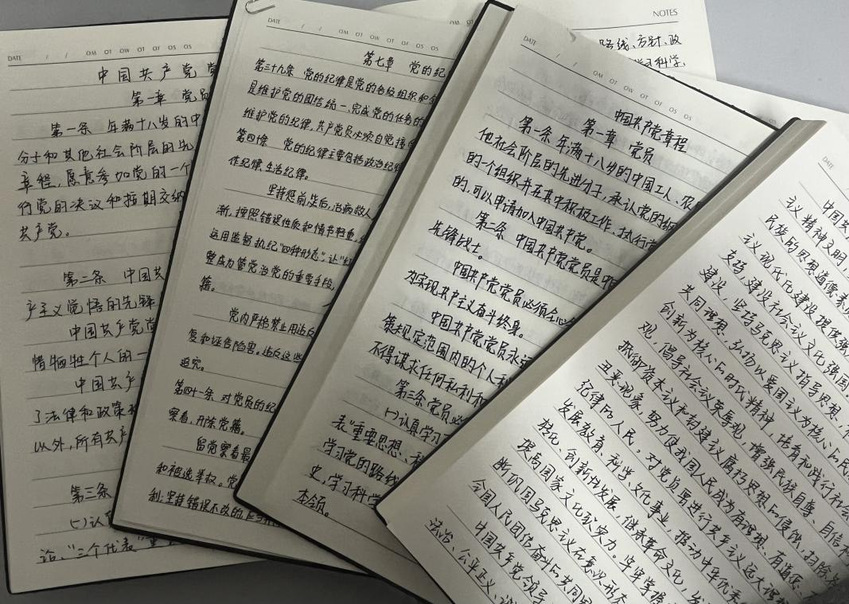 DATE / / OM OT OW OT OF OS OS
中国共产党
第一章 党员
第一条 年满十八岁的中
分子和其他社会阶层的先
章程,愿意参加党的一个
行党的决议和按期交纳
共产党。
第二条 中国共
产主义觉悟的先锋
中国共产党党
惜牺牲个人的一
中国共产
了法律和政策
以外,所有共产
第三条
(一)认真
论、“三个代表”重
DATE / / OM OT OW OT OF OS OS
第七章 党的纪
第三十九条 党的纪律是党的各级组织和全
是维护党的团结统一、完成党的任务的
维护党的纪律,共产党员必须自觉接
第四十条 党的纪律主要包括政治纪律
作纪律、生活纪律。
坚持惩前毖后、治病救人
渐,按照错误性质和情节轻重,
运用监督执纪“四种形态”,让“红
整成为管党治党的重要手段,
籍。
党内严格禁止用违反
复和诬告陷害。违反这些
追究。
第四十一条 对党员的纪
察看、开除党籍。
留党察看最
和被选举权。党
利;坚持错误不改的,
DATE / / OM OT OW OT OF OS OS
中国共产党章程
第一章 党员
第一条 年满十八岁的中国工人、农
他社会阶层的先进分子,承认党的纲
的一个组织并在其中积极工作、执行党
的,可以申请加入中国共产党。
第二条 中国共产党党员是中
先锋战士。
中国共产党党员必须全心全
为实现共产主义奋斗终身。
中国共产党党员永远
策规定范围内的个人利
不得谋求任何私利和
第三条 党员必
(一)认真学习
表”重要思想、科
学习党的路线
史,学习科学
本领。
NOTES
路线、方针、政
学习科学、
DATE
中国共
主义精神文明,
民族的思想道德素
主义现代化建设提供强
支持,建设社会主义文化强国
建设,坚持马克思主义指导思想,
共同理想,弘扬以爱国主义为核心的民
创新为核心的时代精神,培育和践行社会
观,倡导社会主义荣辱观,增强民族自尊、自信和
抵御资本主义和封建主义腐朽思想的侵蚀,扫除各
丑恶现象,努力使我国人民成为有理想、有道德、
纪律的人民。对党员要进行共产主义远大理想
发展教育、科学、文化事业,推动中华优秀
转化、创新性发展,继承革命文化,发
提高国家文化软实力。牢牢掌握
断巩固马克思主义在意识形态
全国人民团结奋斗的共同思
中国共产党领导
法治、公平正义、